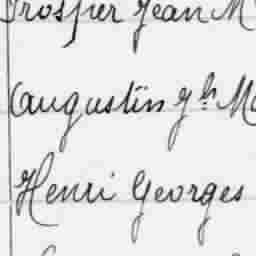 Prosper Jean M
Augustin Jh M
Henri Georges